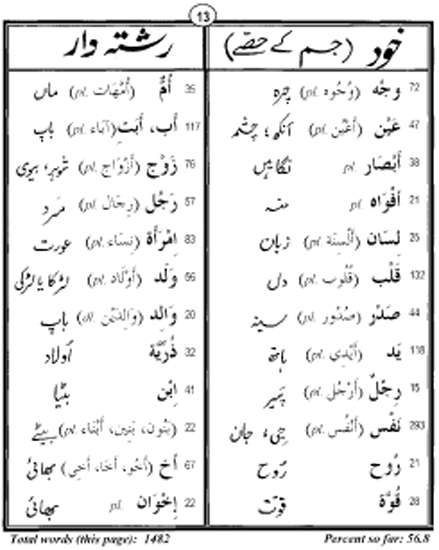 13
خود (جسم کے حصے)
72 وَجْه (وُجُوه pl.) چہرہ
47 عَيْن (أَعْيُن pl.) آنکھ؛ چشمہ
38 أَبْصَار pl. نگاہیں
21 أَفْوَاه pl. منہ
25 لِسَان (أَلْسِنَة pl.) زبان
132 قَلْب (قُلُوب pl.) دل
44 صَدْر (صُدُور pl.) سینہ
118 يَد (أَيْدِي pl.) ہاتھ
15 رِجْلٌ (أَرْجُل pl.) پیر
293 نَفْس (أَنْفُس pl.) جی، جان
21 رُوح رُوح
28 قُوَّة قوت
رشتہ دار
35 أُمّ (أُمَّهَات pl.) ماں
117 أَب، أَبَتِ (آبَاء pl.) باپ
76 زَوْج (أَزْوَاج pl.) شوہر، بیوی
57 رَجُل (رِجَال pl.) مرد
83 اِمْرَأَة (نِسَاء pl.) عورت
56 وَلَد (أَوْلَاد pl.) لڑکا یا لڑکی
20 وَالِد (وَالِدَيْن dl.) باپ
32 ذُرِّيَّة اولاد
41 اِبْن بیٹا
22 (بَنُون، بَنِين، أَبْنَاء pl.) بیٹے
67 أَخ (أَخُو، أَخَا، أَخِي) بھائی
22 إِخْوَان pl. بھائی
Total words (this page): 1482
Percent so far: 56.8